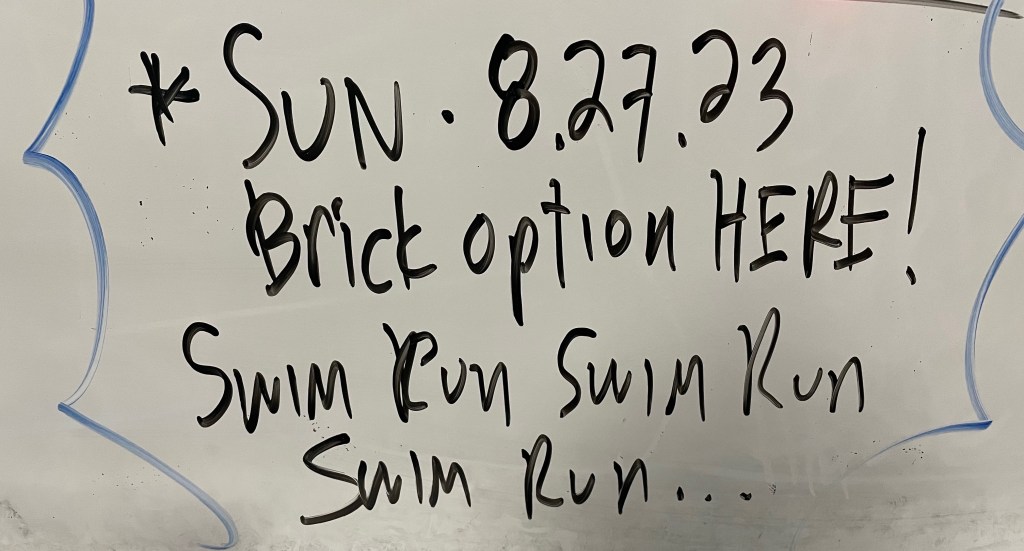 * SUN. 8.27.23
Brick option HERE!
Swim Run Swim Run
Swim Run...